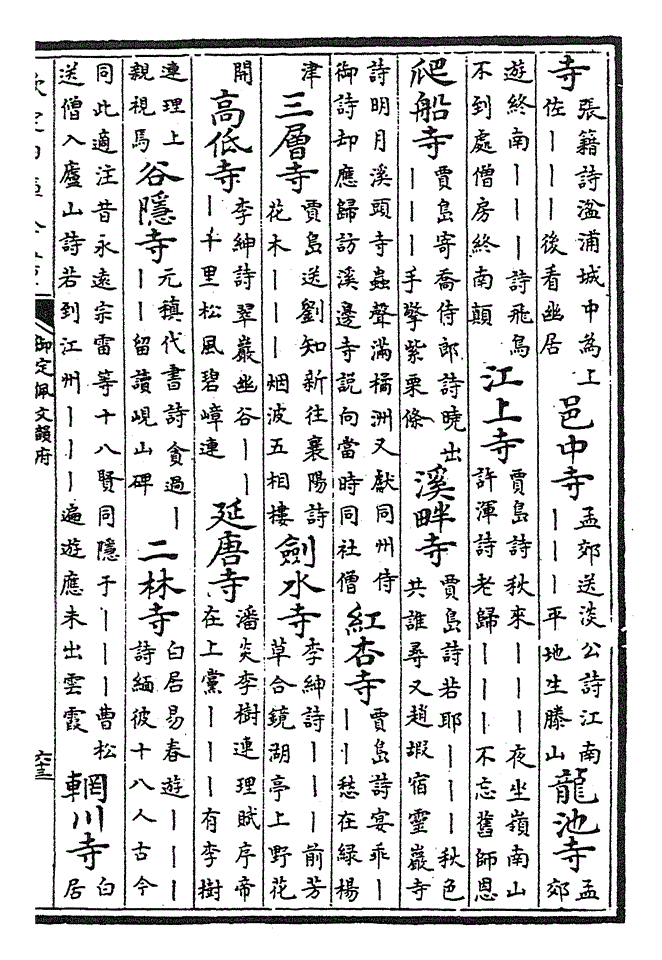 寺張籍詩湓浦城中為上佐｜｜｜後看幽居邑中寺孟郊送淡公詩江南｜｜｜平地生勝山龍池寺孟郊
遊終南｜｜｜詩飛鳥不到處僧房終南顛江上寺賈島詩秋來｜｜｜夜坐嶺南山許渾詩老歸｜｜｜不忘舊師恩
爬船寺賈島寄喬侍郎詩曉出｜｜｜手擎紫栗條溪畔寺賈島詩若耶｜｜｜秋色共誰尋又趙嘏宿靈巖寺
詩明月溪頭寺蟲聲滿橘洲又獻同州侍御詩却應歸訪溪邊寺説向當時同社僧紅杏寺賈島詩宴乖｜｜｜愁在緑楊
津三層寺賈島送劉知新往襄陽詩花木｜｜｜烟波五相樓劍水寺李紳詩｜｜｜前芳草合鏡湖亭上野花
開高低寺李紳詩翠巖幽谷｜｜｜千里松風碧嶂連延唐寺潘炎李樹連理賦序帝在上黨｜｜｜有李樹
連理上親視焉谷隱寺元稹代書詩貪過｜｜｜留讀峴山碑二林寺白居易春遊｜｜｜詩緬彼十八人古今
同此適注昔永遠宗雷等十八賢同隱于｜｜｜曹松送僧入廬山詩若到江州｜｜｜遍遊應未出雲霞輞川寺白居
欽定四庫全書
御定佩文韻府
六十三